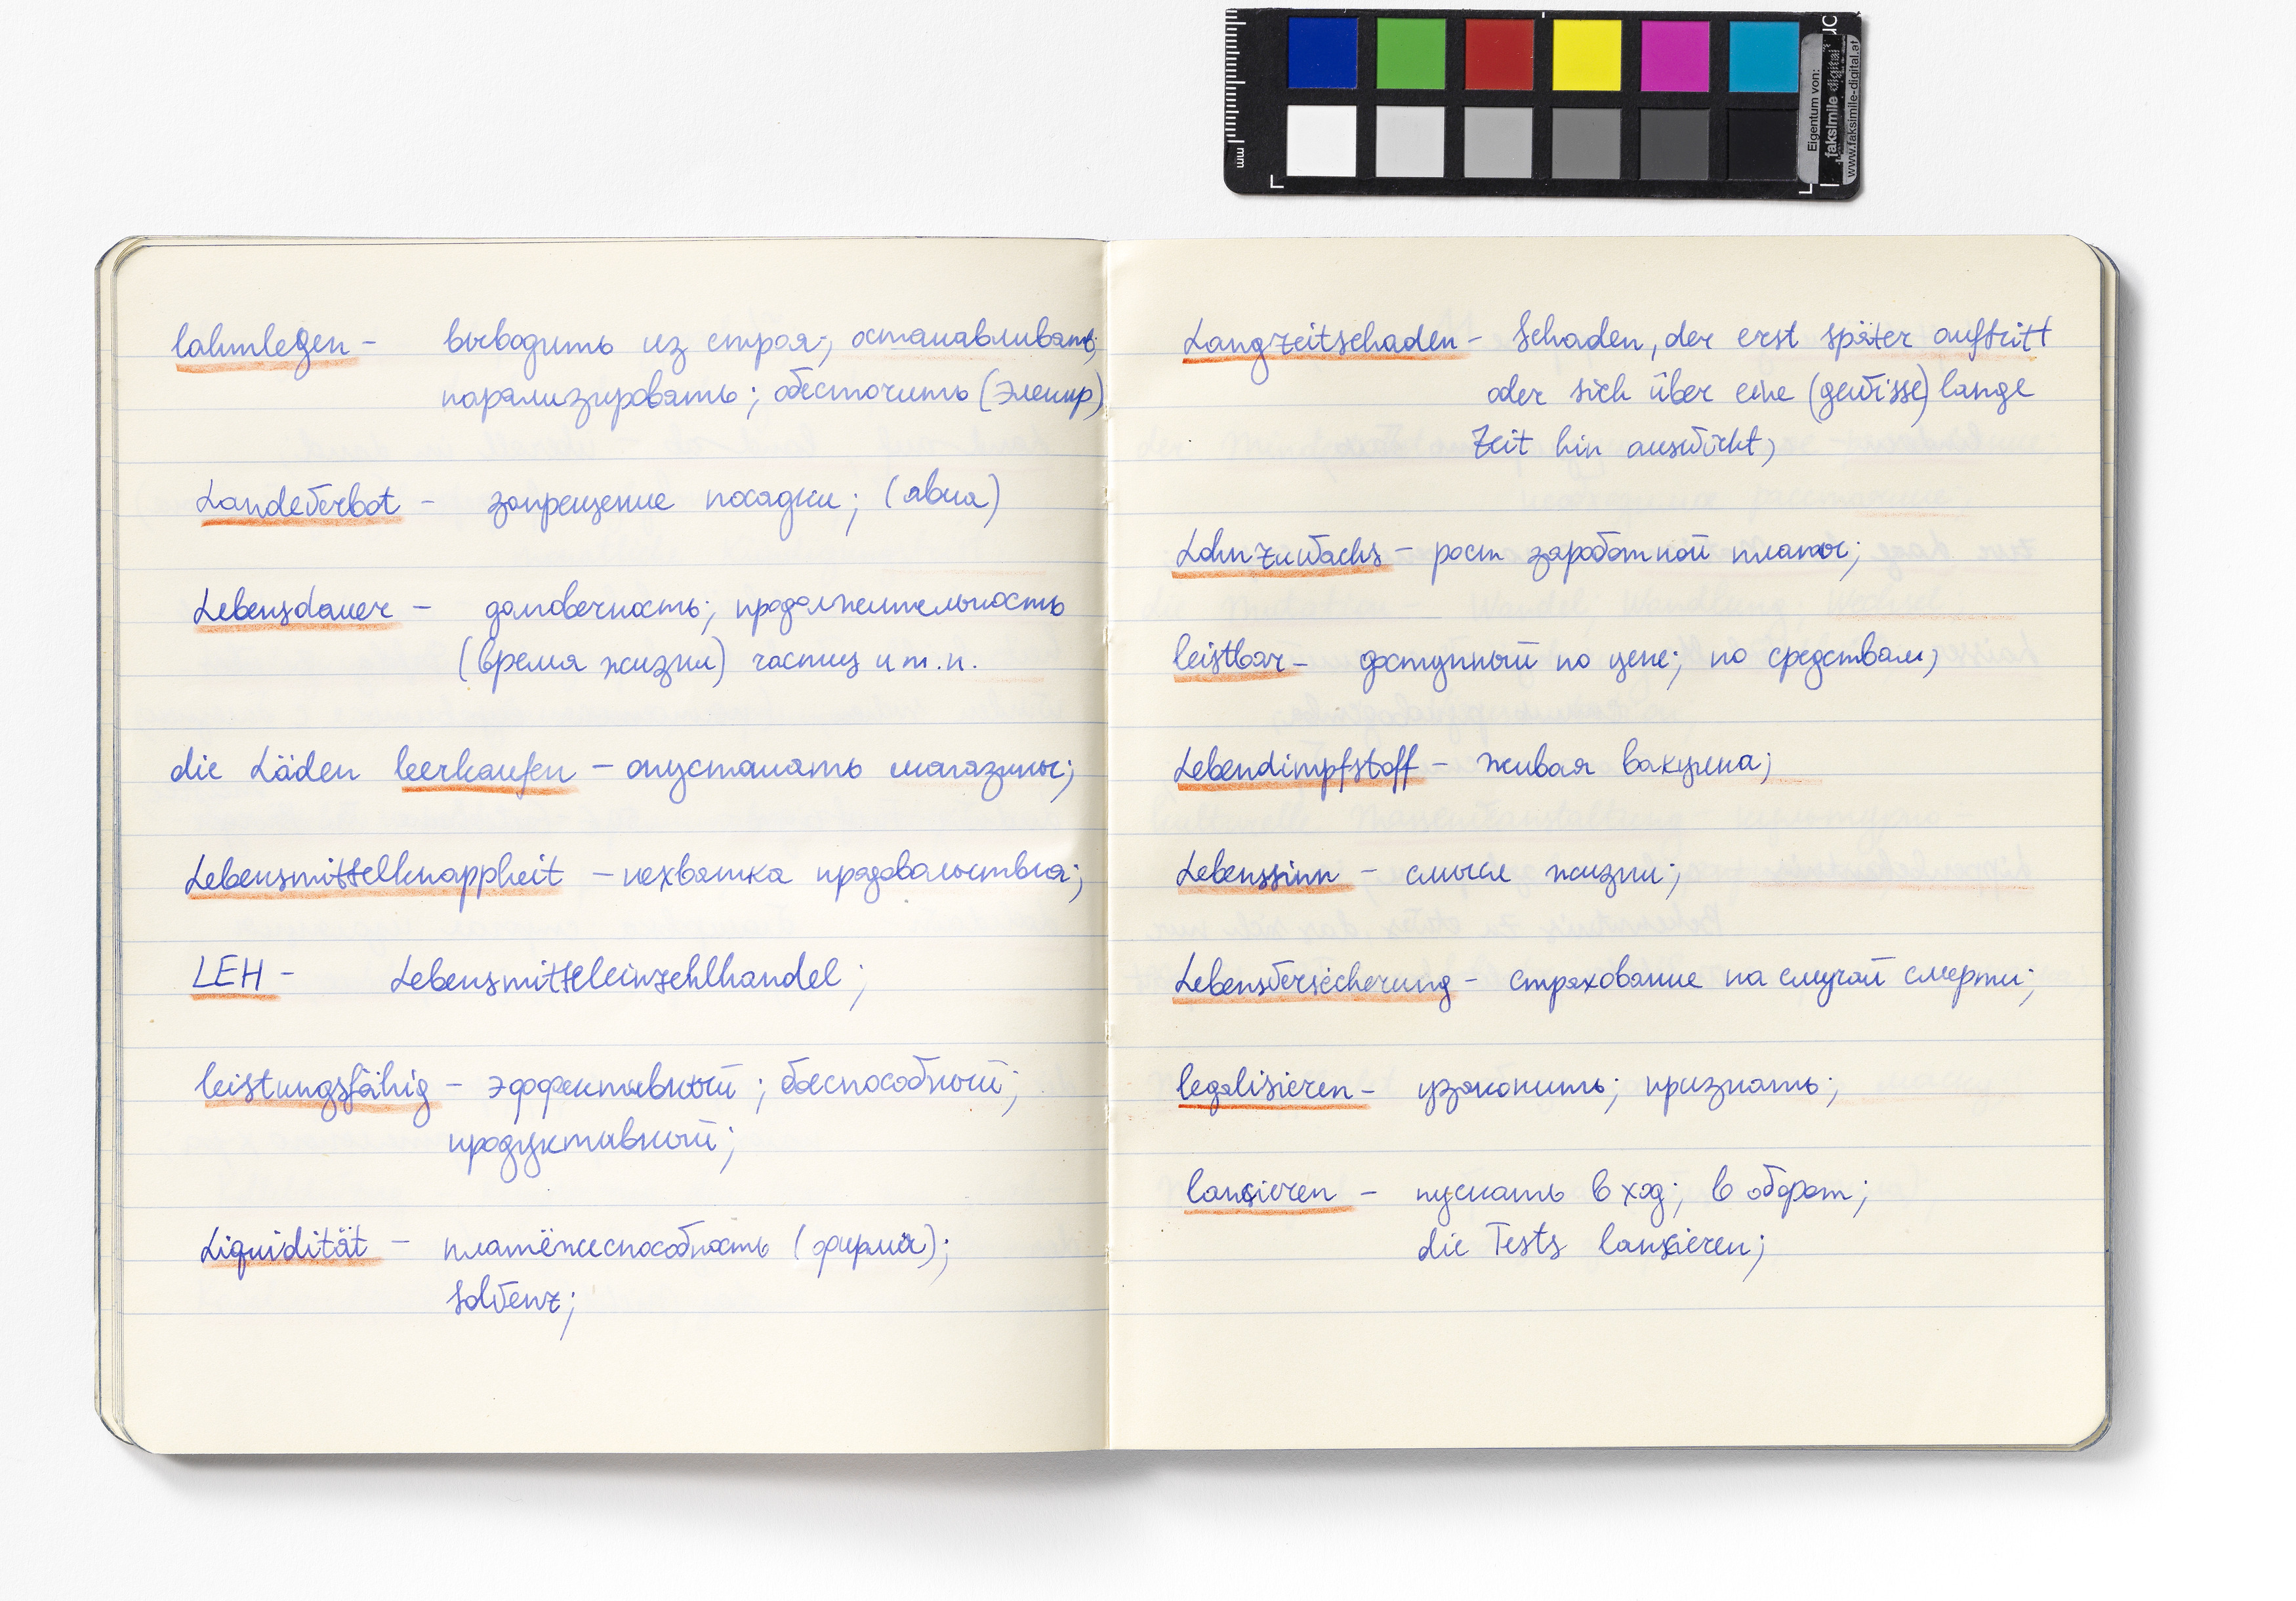 lahmlegen - выводить из строя; останавливать;
парализировать; обесточить (электр)
Landeverbot - запрещение посадки; (авиа)
Lebensdauer - долговечность; продолжительность
(время жизни) частиц и т.п.
die Läden leerkaufen - опустошать магазины;
Lebensmittelknappheit - нехватка продовольствия;
LEH - Lebensmitteleinzehlhandel;
leistungsfähig - эффективный; боеспособный;
продуктивный;
Liquidität - платёжеспособность (фирмы);
Solvenz;
Langzeitschaden - Schaden, der erst später auftritt
oder sich über eine (gewisse) lange
Zeit hin auswirkt;
Lohnzuwachs - рост заработной платы;
leistbar - доступный по цене; по средствам;
Lebendimpfstoff - живая вакцина;
Lebenssinn - смысл жизни;
Lebensversicherung - страхование на случай смерти;
legalisieren - узаконить; признать;
lansieren - пускать в ход; в оборот;
die Tests lansieren;
mm
Eigentum von:
faksimile digital
www.faksimile-digital.at